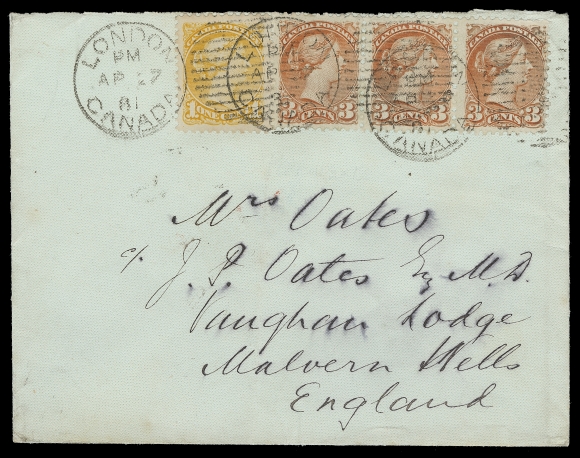 LONDON
PM
AP 27
81
CANADA
CANADA POSTAGE
CANADA POSTAGE
CANADA POSTAGE
3 CENTS 3
3 CENTS 3
3 CENTS 3
CANADA
Mrs Oates
c/ J. P. Oates Esq M.D.
Vaughan Lodge
Malvern Wells
England